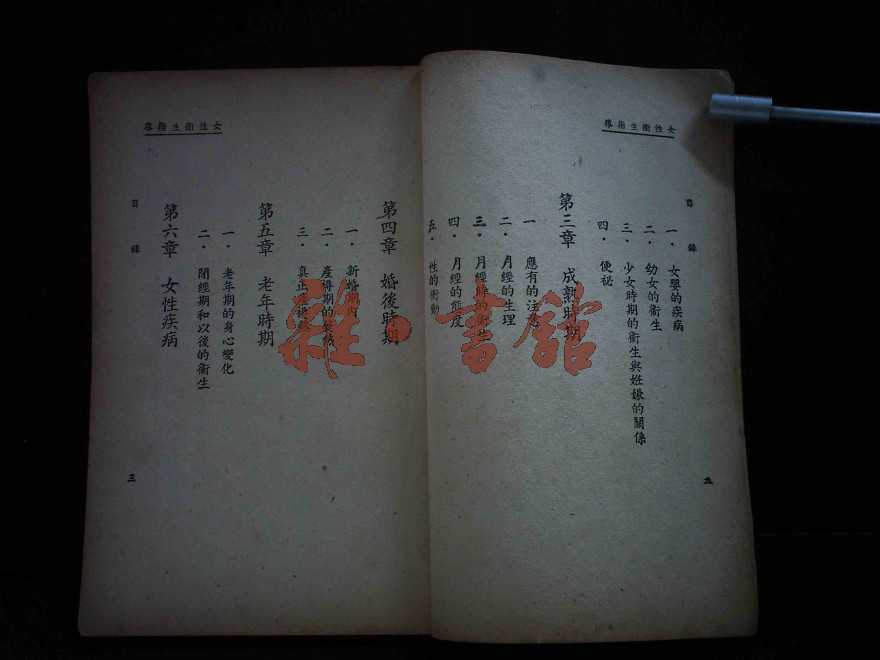 女性衛生指導
目錄
一・女嬰的疾病
二・幼女的衛生
三・少女時期的衛生與姙娠的關係
四・便祕
第三章 成熟時期
一 應有的注意
二・月經的生理
三・月經時的衛生
四・月經的態度
五・性的衝動
二
女性衛生指導
第四章 婚後時期
一・新婚期內
二・產褥期的
三・真正產褥
第五章 老年時期
一・老年期的身心變化
二・閉經期和以後的衛生
第六章 女性疾病
目錄
三
雜・書館